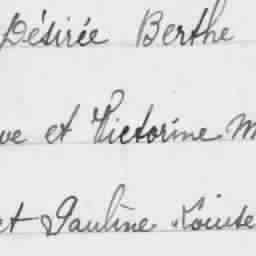 Désirée Berthe
ve et Victorine M
et Pauline